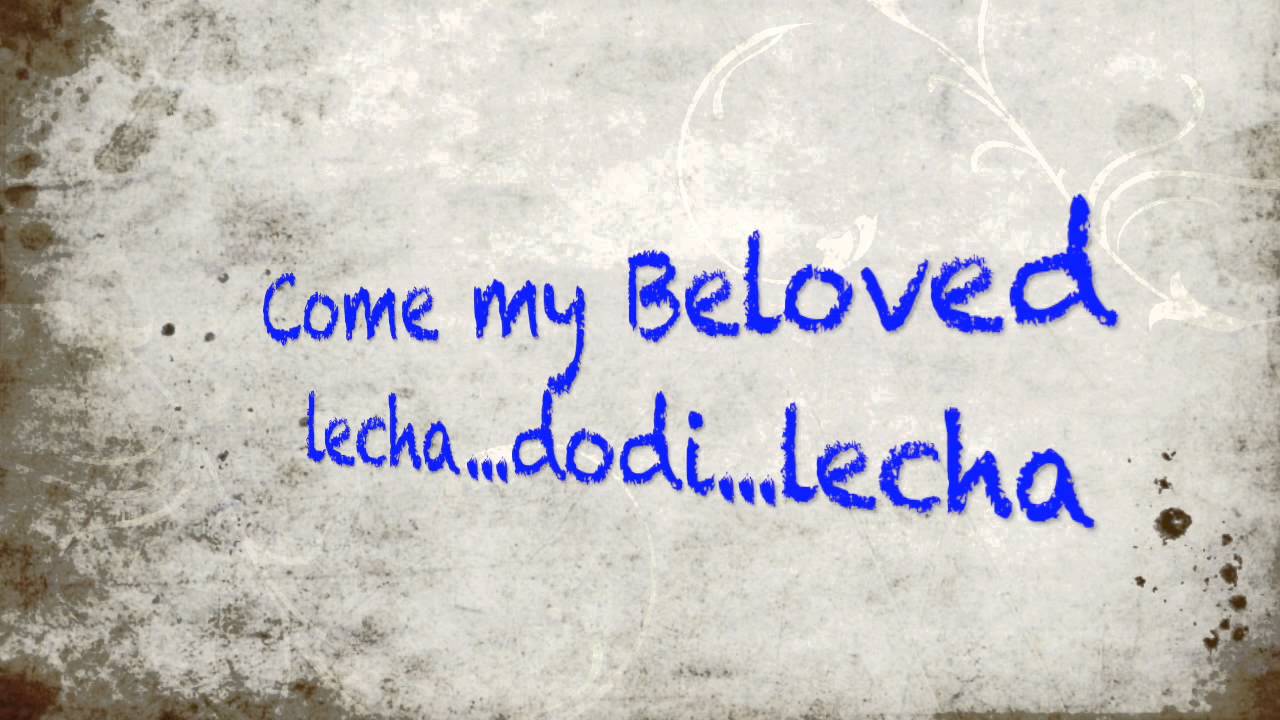 Come my Beloved
lecha...dodi...lecha